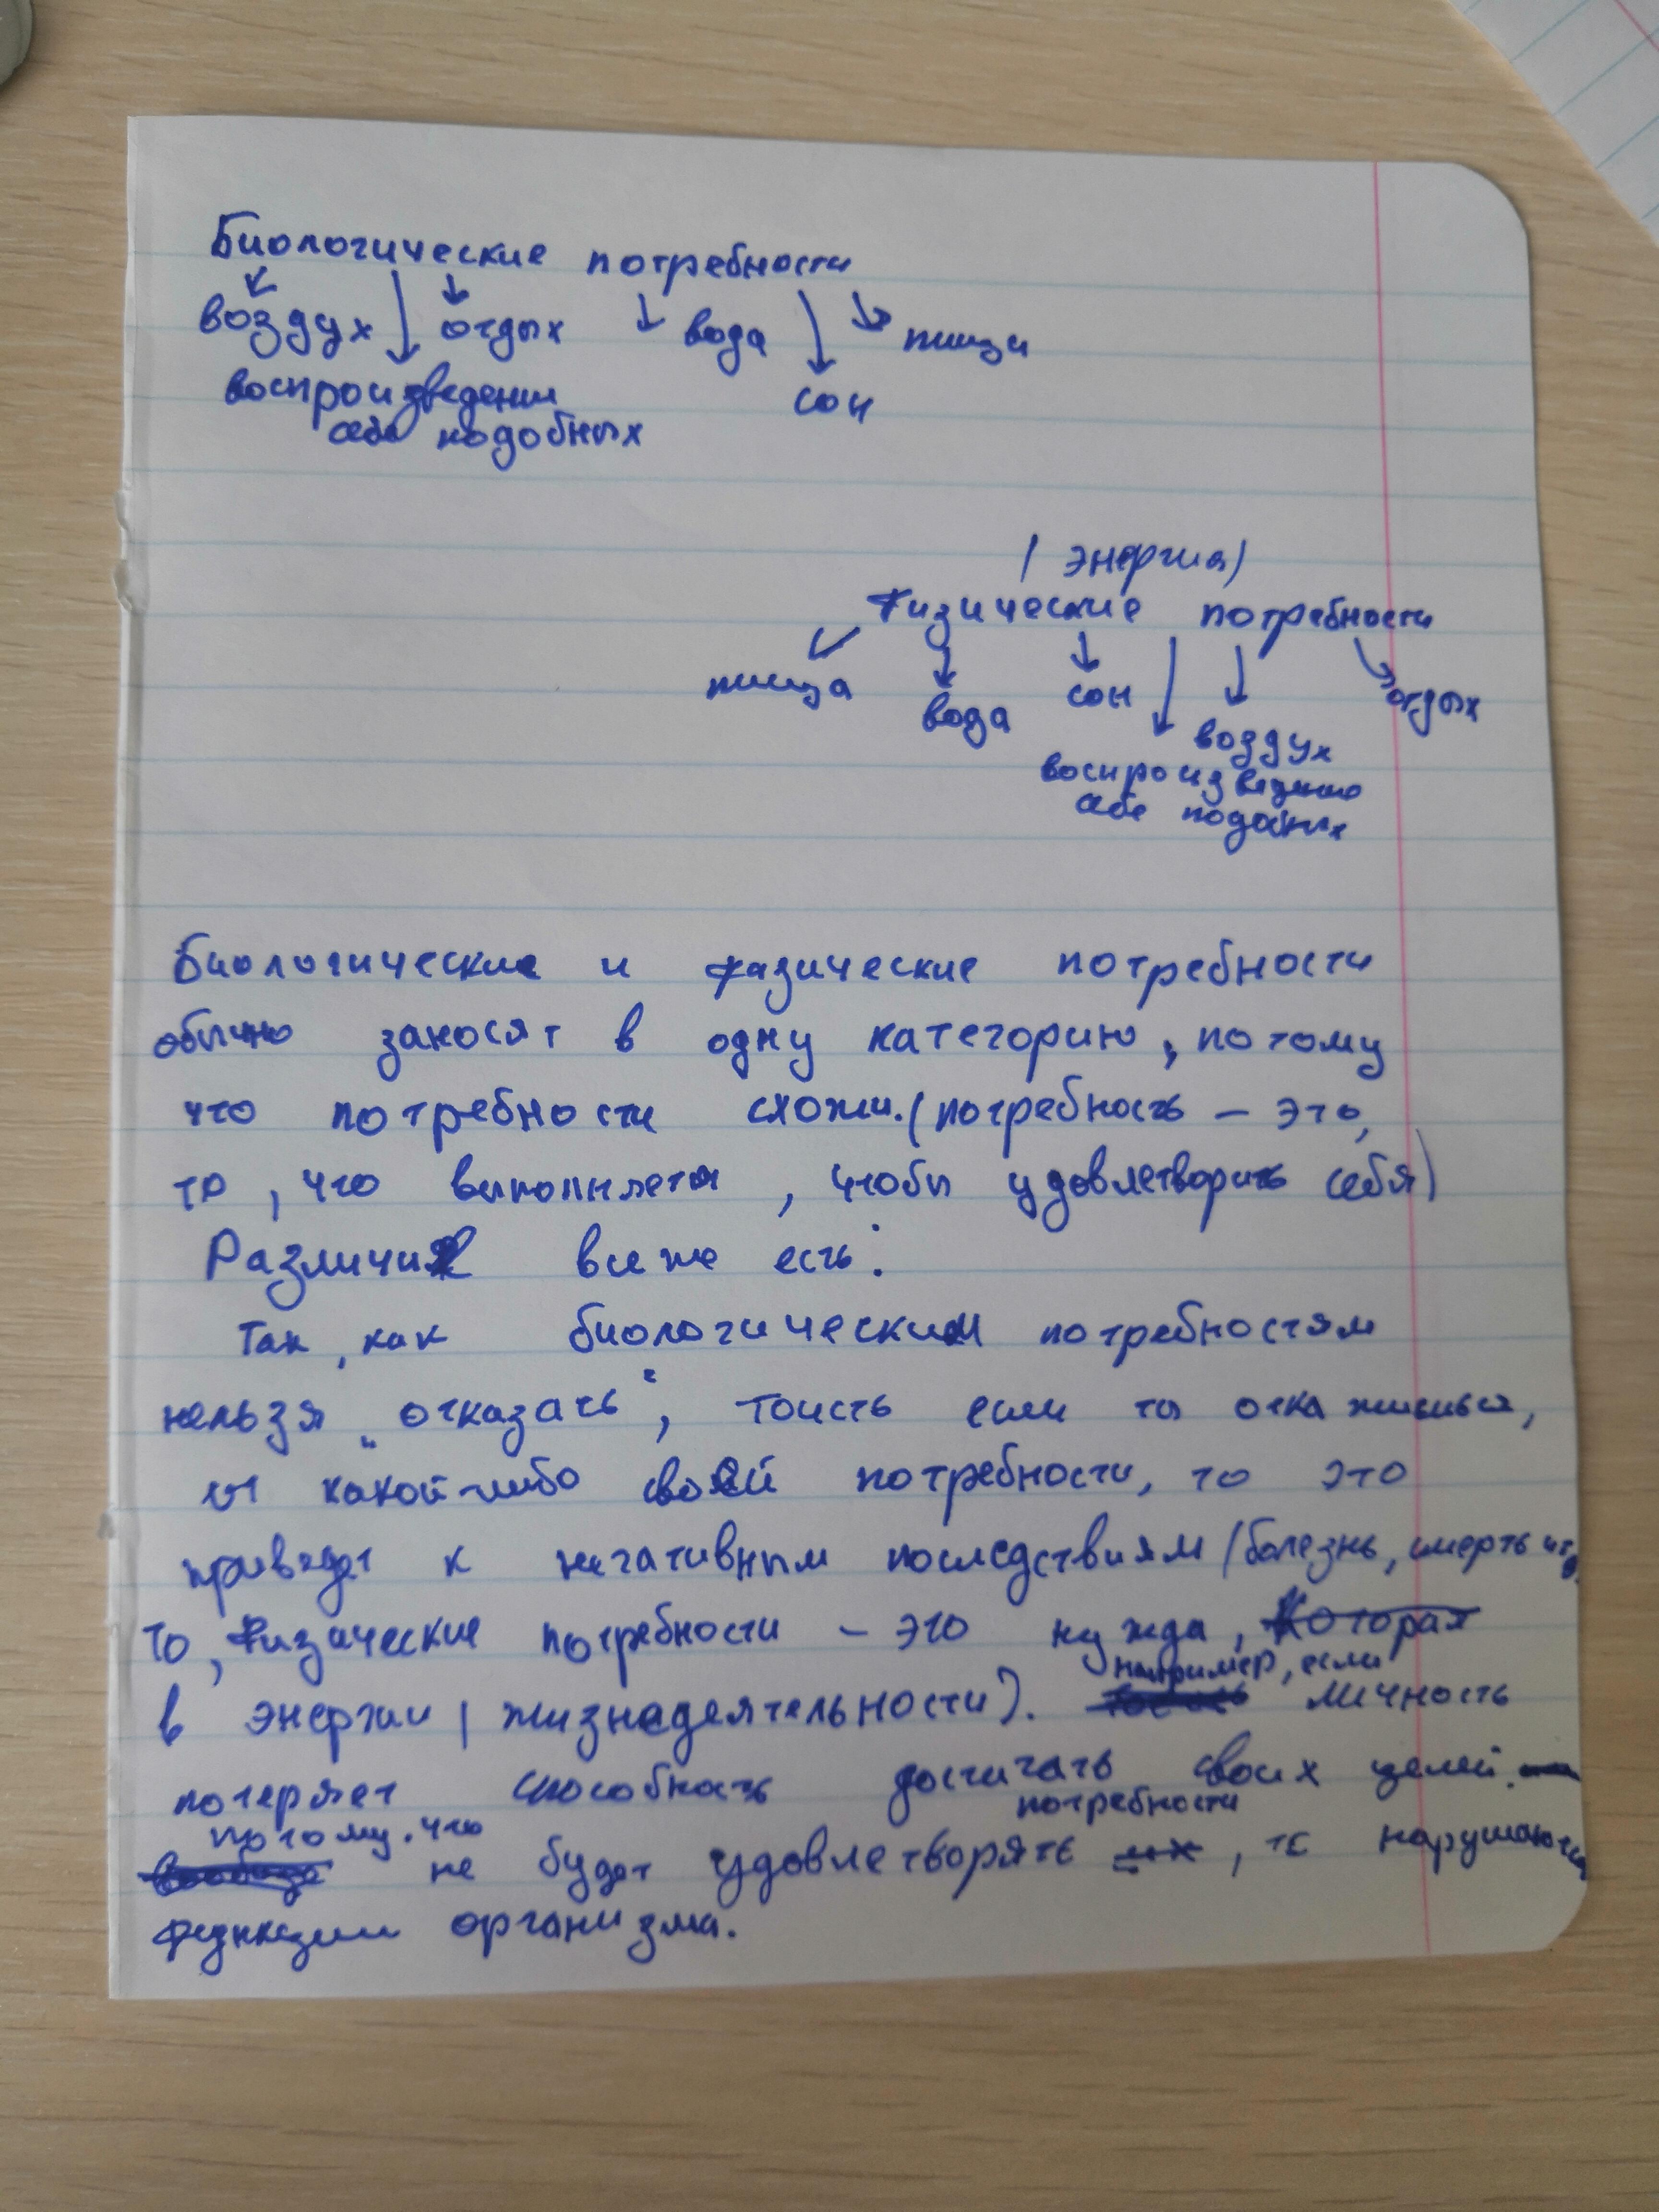 Биологические потребности
воздух отдых вода пища
воспроизведении сон
себе подобных
(энергия)
Физические потребности
пища вода сон отдых
воздух
воспроизведение
себе подобных
Биологические и физические потребности
обычно заносят в одну категорию, потому
что потребности схожи. (потребность – это,
то, что выполняется, чтобы удовлетворить себя)
Различия все же есть:
Так, как биологическим потребностям
нельзя „отказать“, тоисть если ты откажишься,
от какой-либо своей потребности, то это
приведет к негативным последствиям (болезнь, смерть итд.
То, физические потребности – это нужда, которая
в энергии (жизнедеятельности). например, если личность
потеряет способность достигать своих целей.
потому, что не будет удовлетворять потребности их, то нарушаются
функции организма.